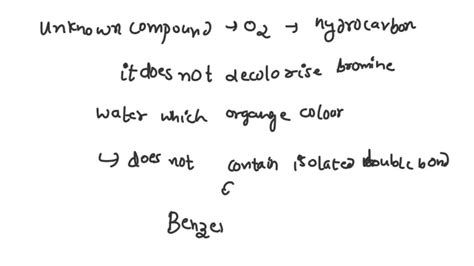 Unknown compound → O2 → hydrocarbon
it does not decolorise bromine
water which organge colour
↳ does not contain isolated double bond
Benze